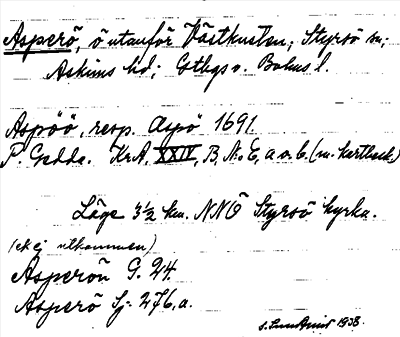 Asperö, ö utanför Västkusten, Styrsö sn;
Askims hd; Gtbgs o. Bohus l.
Aspöö, resp. Aspö 1691.
P. Gedda. KrA, XXIV, B, N:o 6, a o. b. (m. kartbeck.)
Läge 3½ km. NNÖ Styrsö kyrka.
(ek ej utkommen)
Asperön G. 24.
Asperö Sj. 276.a.
1938.